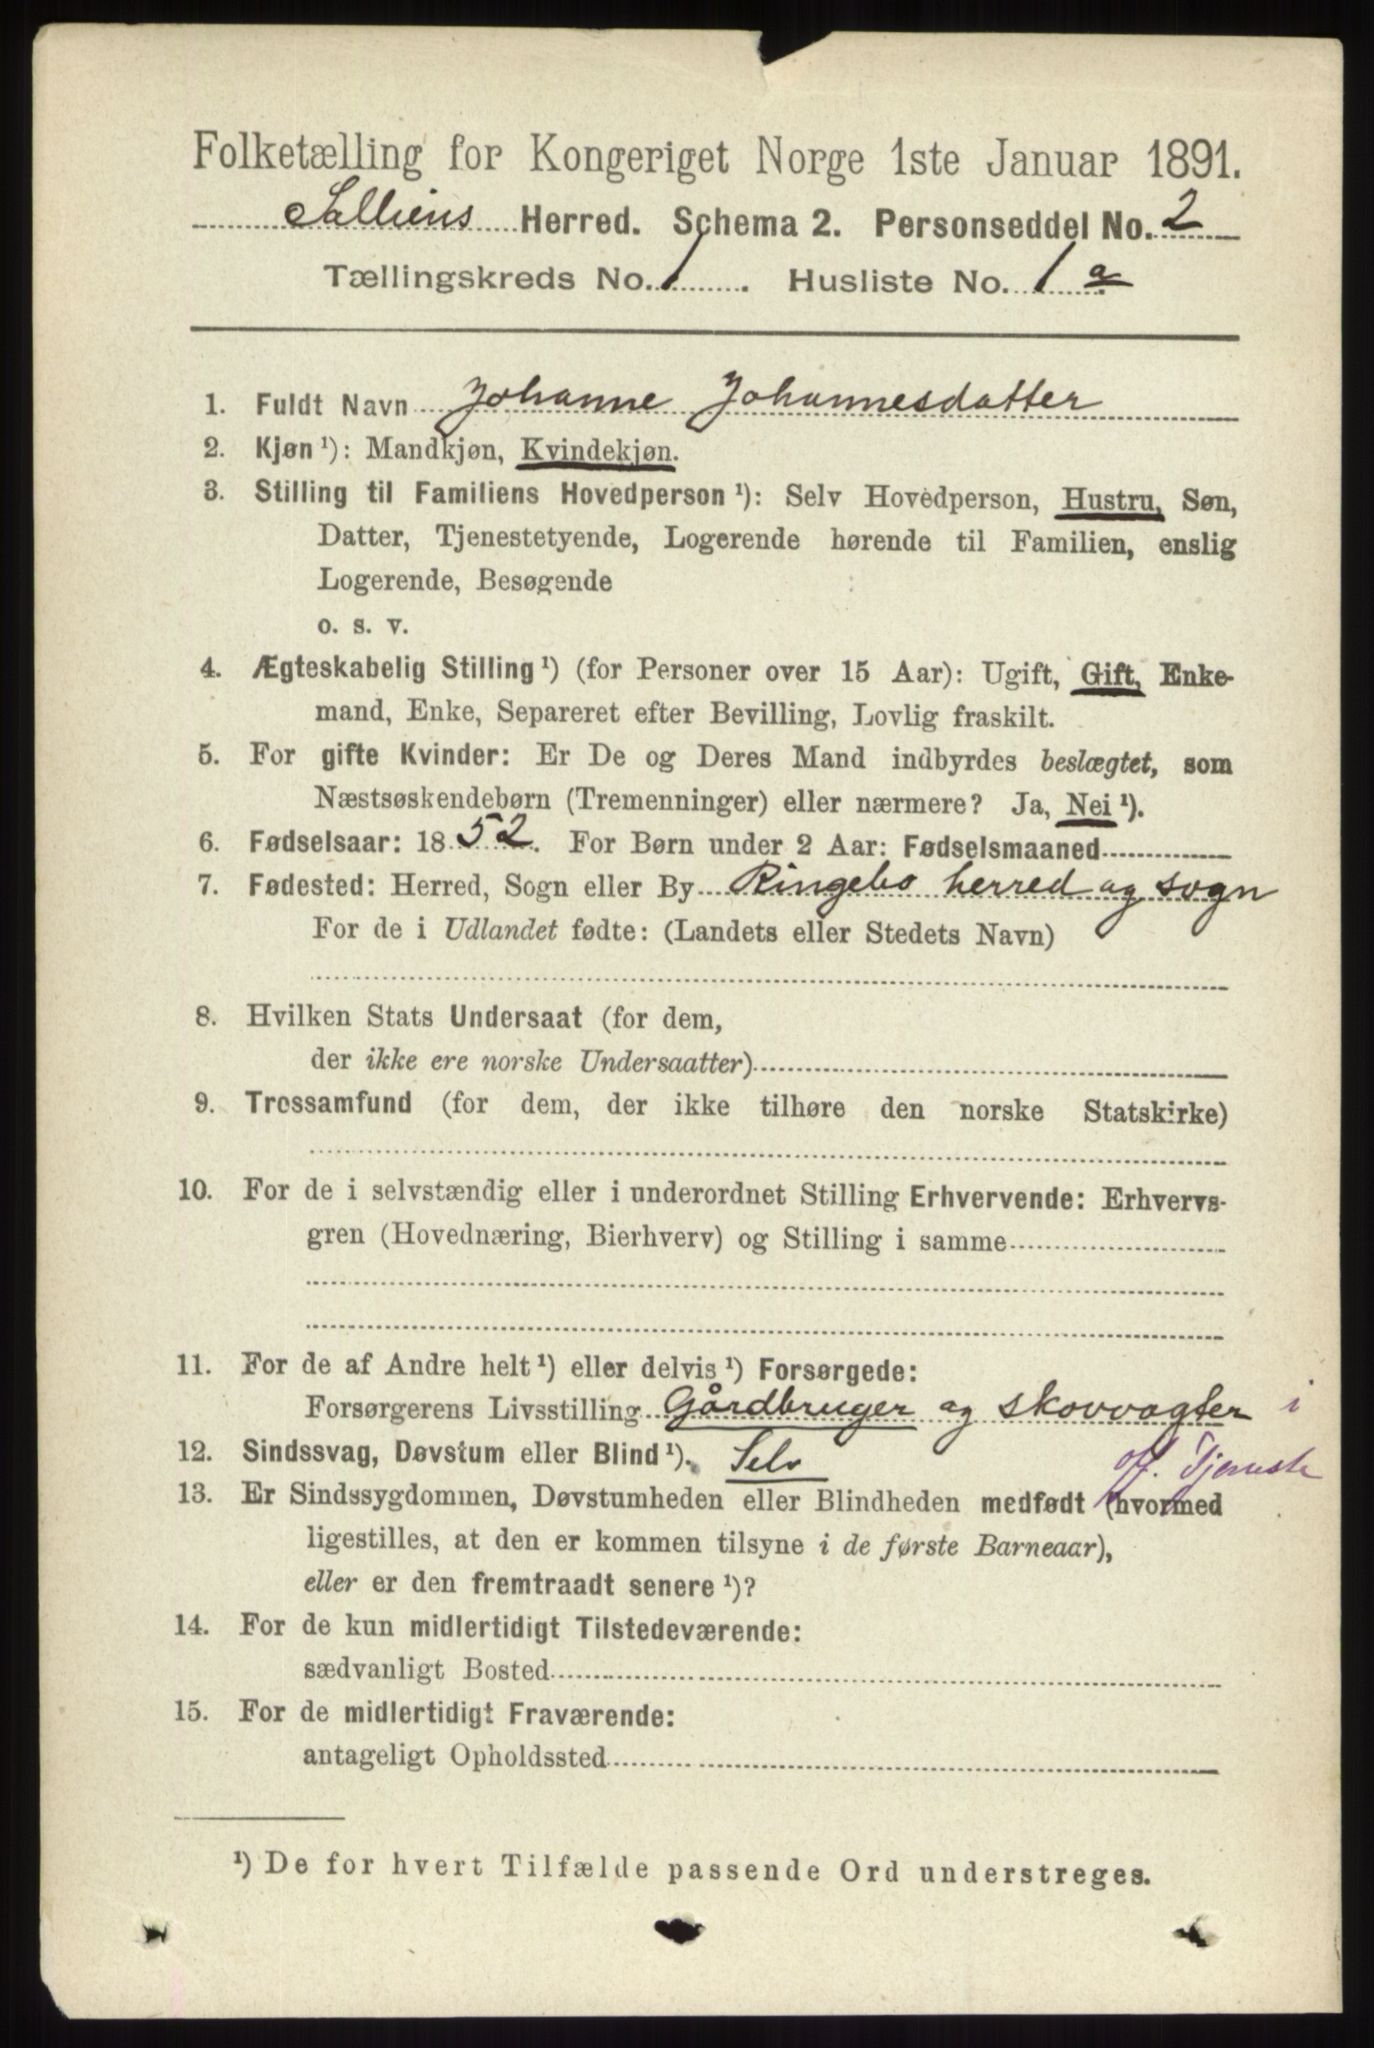 Folketælling for Kongeriget Norge 1ste Januar 1891.
Solliens Herred. Schema 2. Personseddel No. 2
Tællingskreds No. 1. Husliste No. 1 a
1. Fuldt Navn Johanne Johannesdatter
2. Kjøn ¹): Mandkjøn, Kvindekjøn.
3. Stilling til Familiens Hovedperson ¹): Selv Hovedperson, Hustru, Søn,
Datter, Tjenestetyende, Logerende hørende til Familien, enslig
Logerende, Besøgende
o. s. v.
4. Ægteskabelig Stilling ¹) (for Personer over 15 Aar): Ugift, Gift, Enke-
mand, Enke, Separeret efter Bevilling, Lovlig fraskilt.
5. For gifte Kvinder: Er De og Deres Mand indbyrdes beslægtet, som
Næstsøskendebørn (Tremenninger) eller nærmere? Ja, Nei ¹).
6. Fødselsaar: 1852. For Børn under 2 Aar: Fødselsmaaned
7. Fødested: Herred, Sogn eller By Ringebo herred og sogn
For de i Udlandet fødte: (Landets eller Stedets Navn)
8. Hvilken Stats Undersaat (for dem,
der ikke ere norske Undersaatter)
9. Trossamfund (for dem, der ikke tilhøre den norske Statskirke)
10. For de i selvstændig eller i underordnet Stilling Erhvervende: Erhvervs-
gren (Hovednæring, Bierhverv) og Stilling i samme
11. For de af Andre helt ¹) eller delvis ¹) Forsørgede:
Forsørgerens Livsstilling Gårdbruger og skovvogter i
12. Sindssvag, Døvstum eller Blind ¹). Selv off. Tjeneste
13. Er Sindssygdommen, Døvstumheden eller Blindheden medfødt (hvormed
ligestilles, at den er kommen tilsyne i de første Barneaar),
eller er den fremtraadt senere ¹)?
14. For de kun midlertidigt Tilstedeværende:
sædvanligt Bosted
15. For de midlertidigt Fraværende:
antageligt Opholdssted
¹) De for hvert Tilfælde passende Ord understreges.